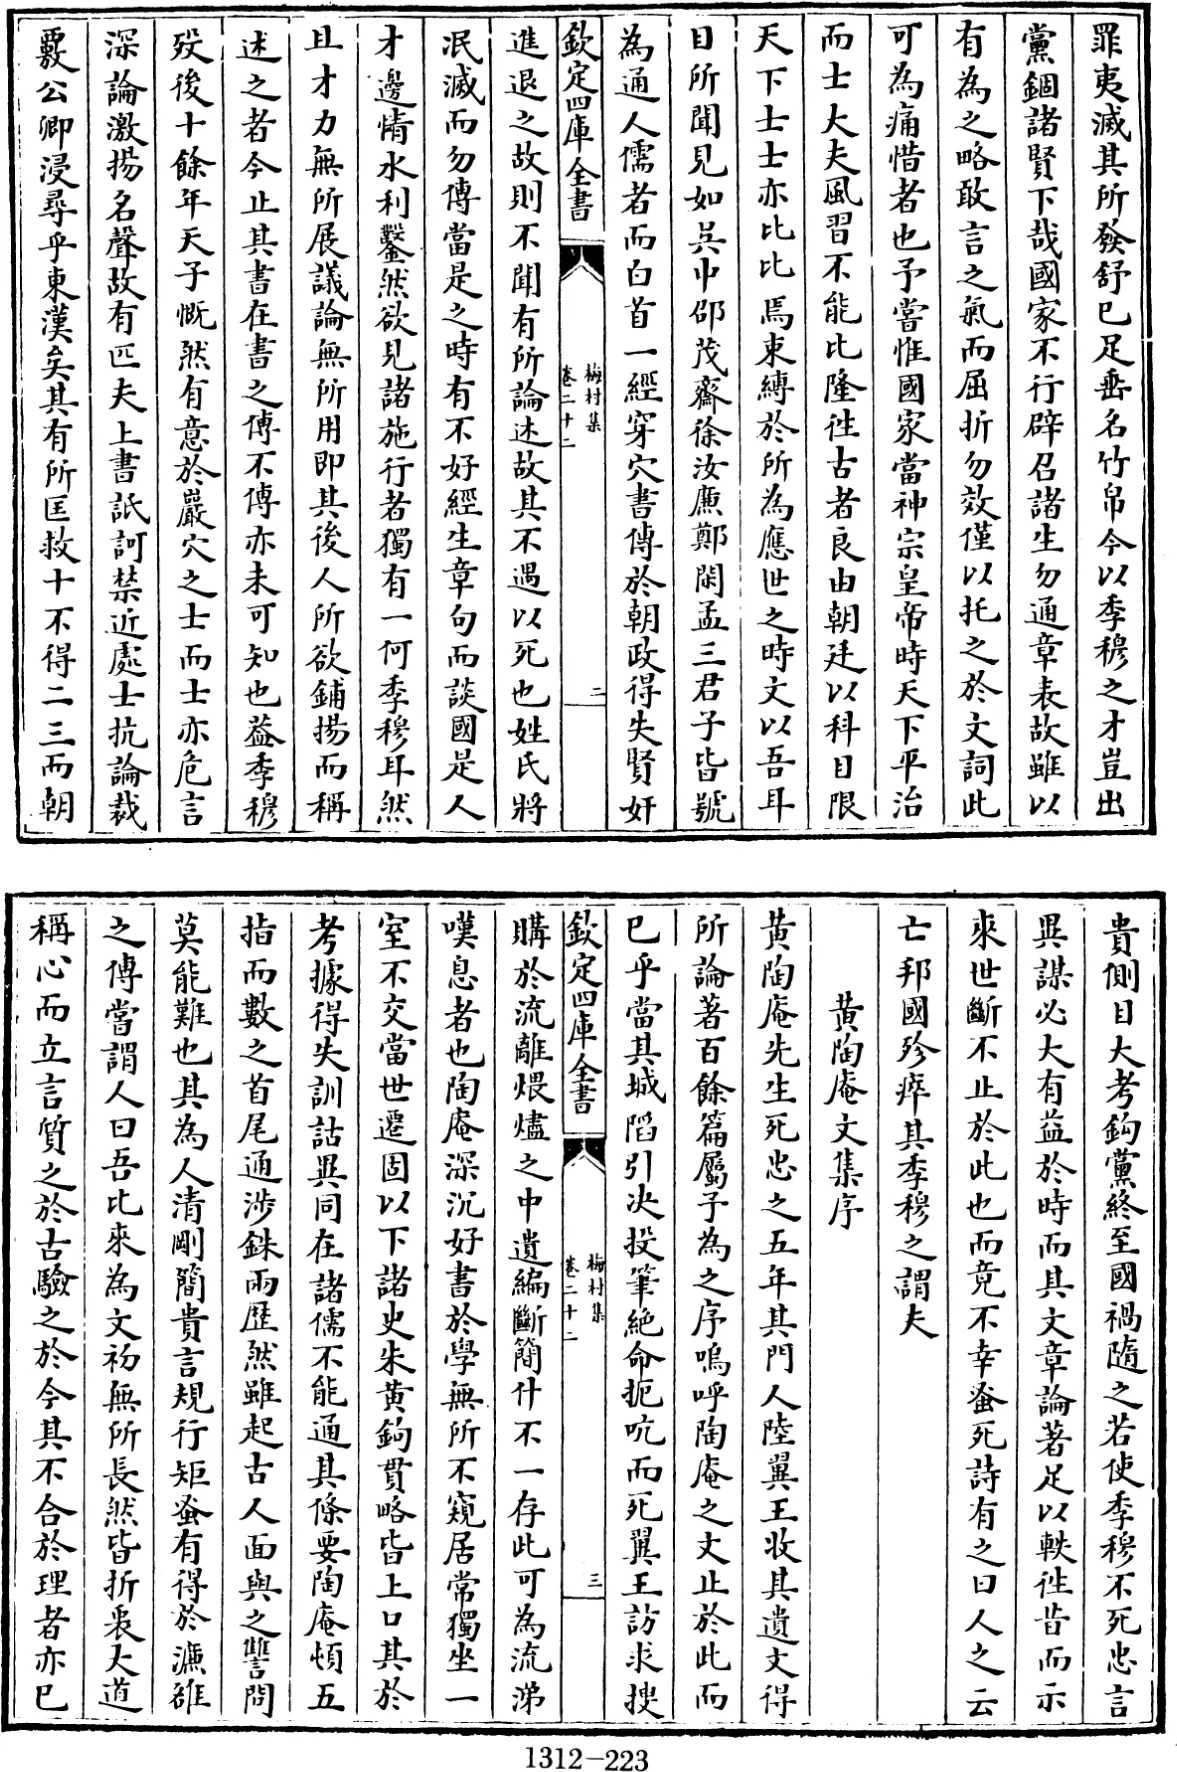 罪夷滅其所發舒已足垂名竹帛今以季穆之才豈出
黨錮諸賢下哉國家不行辟召諸生勿通章表故雖以
有為之略敢言之氣而屈折勿效僅以托之於文詞此
可為痛惜者也予嘗惟國家當神宗皇帝時天下平治
而士大夫風習不能比隆往古者良由朝廷以科目限
天下士士亦比比焉束縛於所為應世之時文以吾耳
目所聞見如吳中邵茂齋徐汝廉鄭閑孟三君子皆號
為通人儒者而白首一經穿穴書傳於朝政得失賢奸
欽定四庫全書
梅村集
卷二十二
二
進退之故則不聞有所論述故其不遇以死也姓氏將
泯滅而勿傳當是之時有不好經生章句而談國是人
才邊情水利鑿然欲見諸施行者獨有一何季穆耳然
且才力無所展議論無所用即其後人所欲鋪揚而稱
述之者今止其書在書之傳不傳亦未可知也蓋季穆
歿後十餘年天子慨然有意於巖穴之士而士亦危言
深論激揚名聲故有匹夫上書詆訶禁近處士抗論裁
覈公卿浸尋乎東漢矣其有所匡救十不得二三而朝
貴側目大考鈎黨終至國禍隨之若使季穆不死忠言
異謀必大有益於時而其文章論著足以軼往昔而示
來世斷不止於此也而竟不幸蚤死詩有之曰人之云
亡邦國殄瘁其季穆之謂夫
黃陶庵文集序
黃陶庵先生死忠之五年其門人陸翼王收其遺文得
所論著百餘篇屬予為之序嗚呼陶庵之文止於此而
已乎當其城陷引決投筆絕命扼吭而死翼王訪求搜
欽定四庫全書
梅村集
卷二十二
三
購於流離煨燼之中遺編斷簡什不一存此可為流涕
嘆息者也陶庵深沉好書於學無所不窺居常獨坐一
室不交當世遷固以下諸史朱黃鈎貫略皆上口其於
考據得失訓詁異同在諸儒不能通其條要陶庵頓五
指而數之首尾通涉銖兩歷然雖起古人面與之讐問
莫能難也其為人清剛簡貴言規行矩蚤有得於濂雒
之傳嘗謂人曰吾比來為文初無所長然皆折衷大道
稱心而立言質之於古驗之於今其不合於理者亦已
1312-223